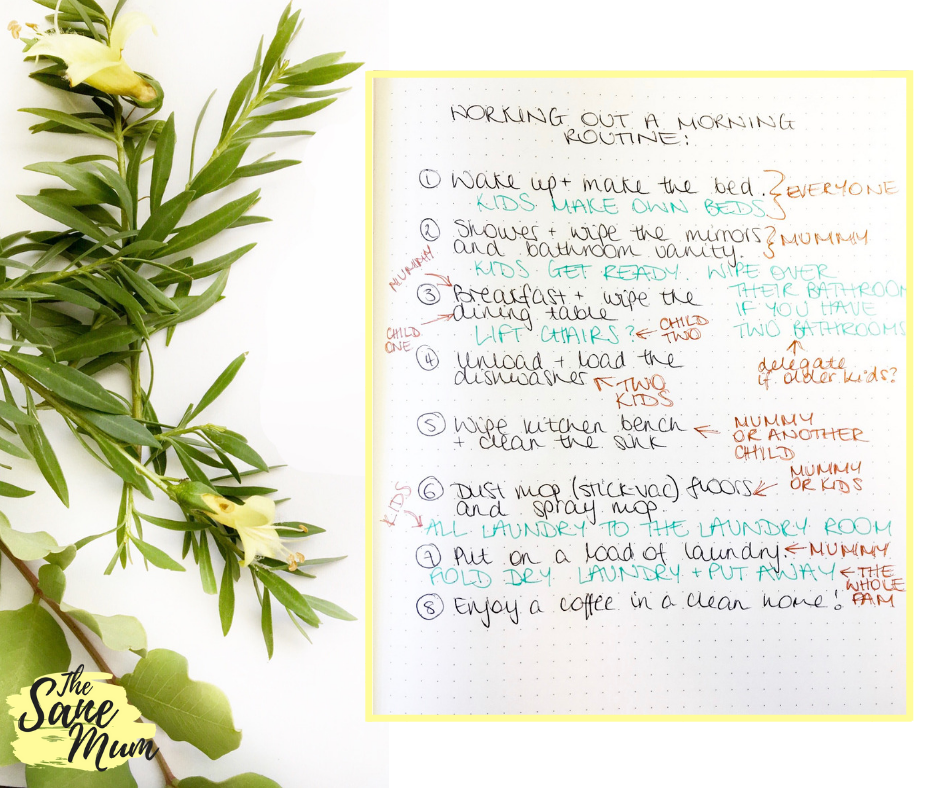 WORKING OUT A MORNING
ROUTINE:
① Wake up + make the bed. } EVERYONE
KIDS MAKE OWN BEDS
② Shower + wipe the mirrors } MUMMY
and bathroom vanity.
KIDS GET READY. WIPE OVER
THEIR BATHROOM
IF YOU HAVE
TWO BATHROOMS
↑
delegate
if older kids?
MUMMY
③ Breakfast + wipe the
dining table
CHILD
ONE
LIFT CHAIRS? ← CHILD
TWO
④ Unload + load the
dishwasher ← TWO
KIDS
⑤ Wipe kitchen bench
+ clean the sink
← MUMMY
OR ANOTHER
CHILD
⑥ Dust mop (stick vac) floors
and spray mop
← MUMMY
OR KIDS
KIDS
ALL LAUNDRY TO THE LAUNDRY ROOM
⑦ Put on a load of laundry. ← MUMMY
FOLD DRY LAUNDRY + PUT AWAY ← THE
WHOLE
FAM
⑧ Enjoy a coffee in a clean home!
The
Sane
Mum